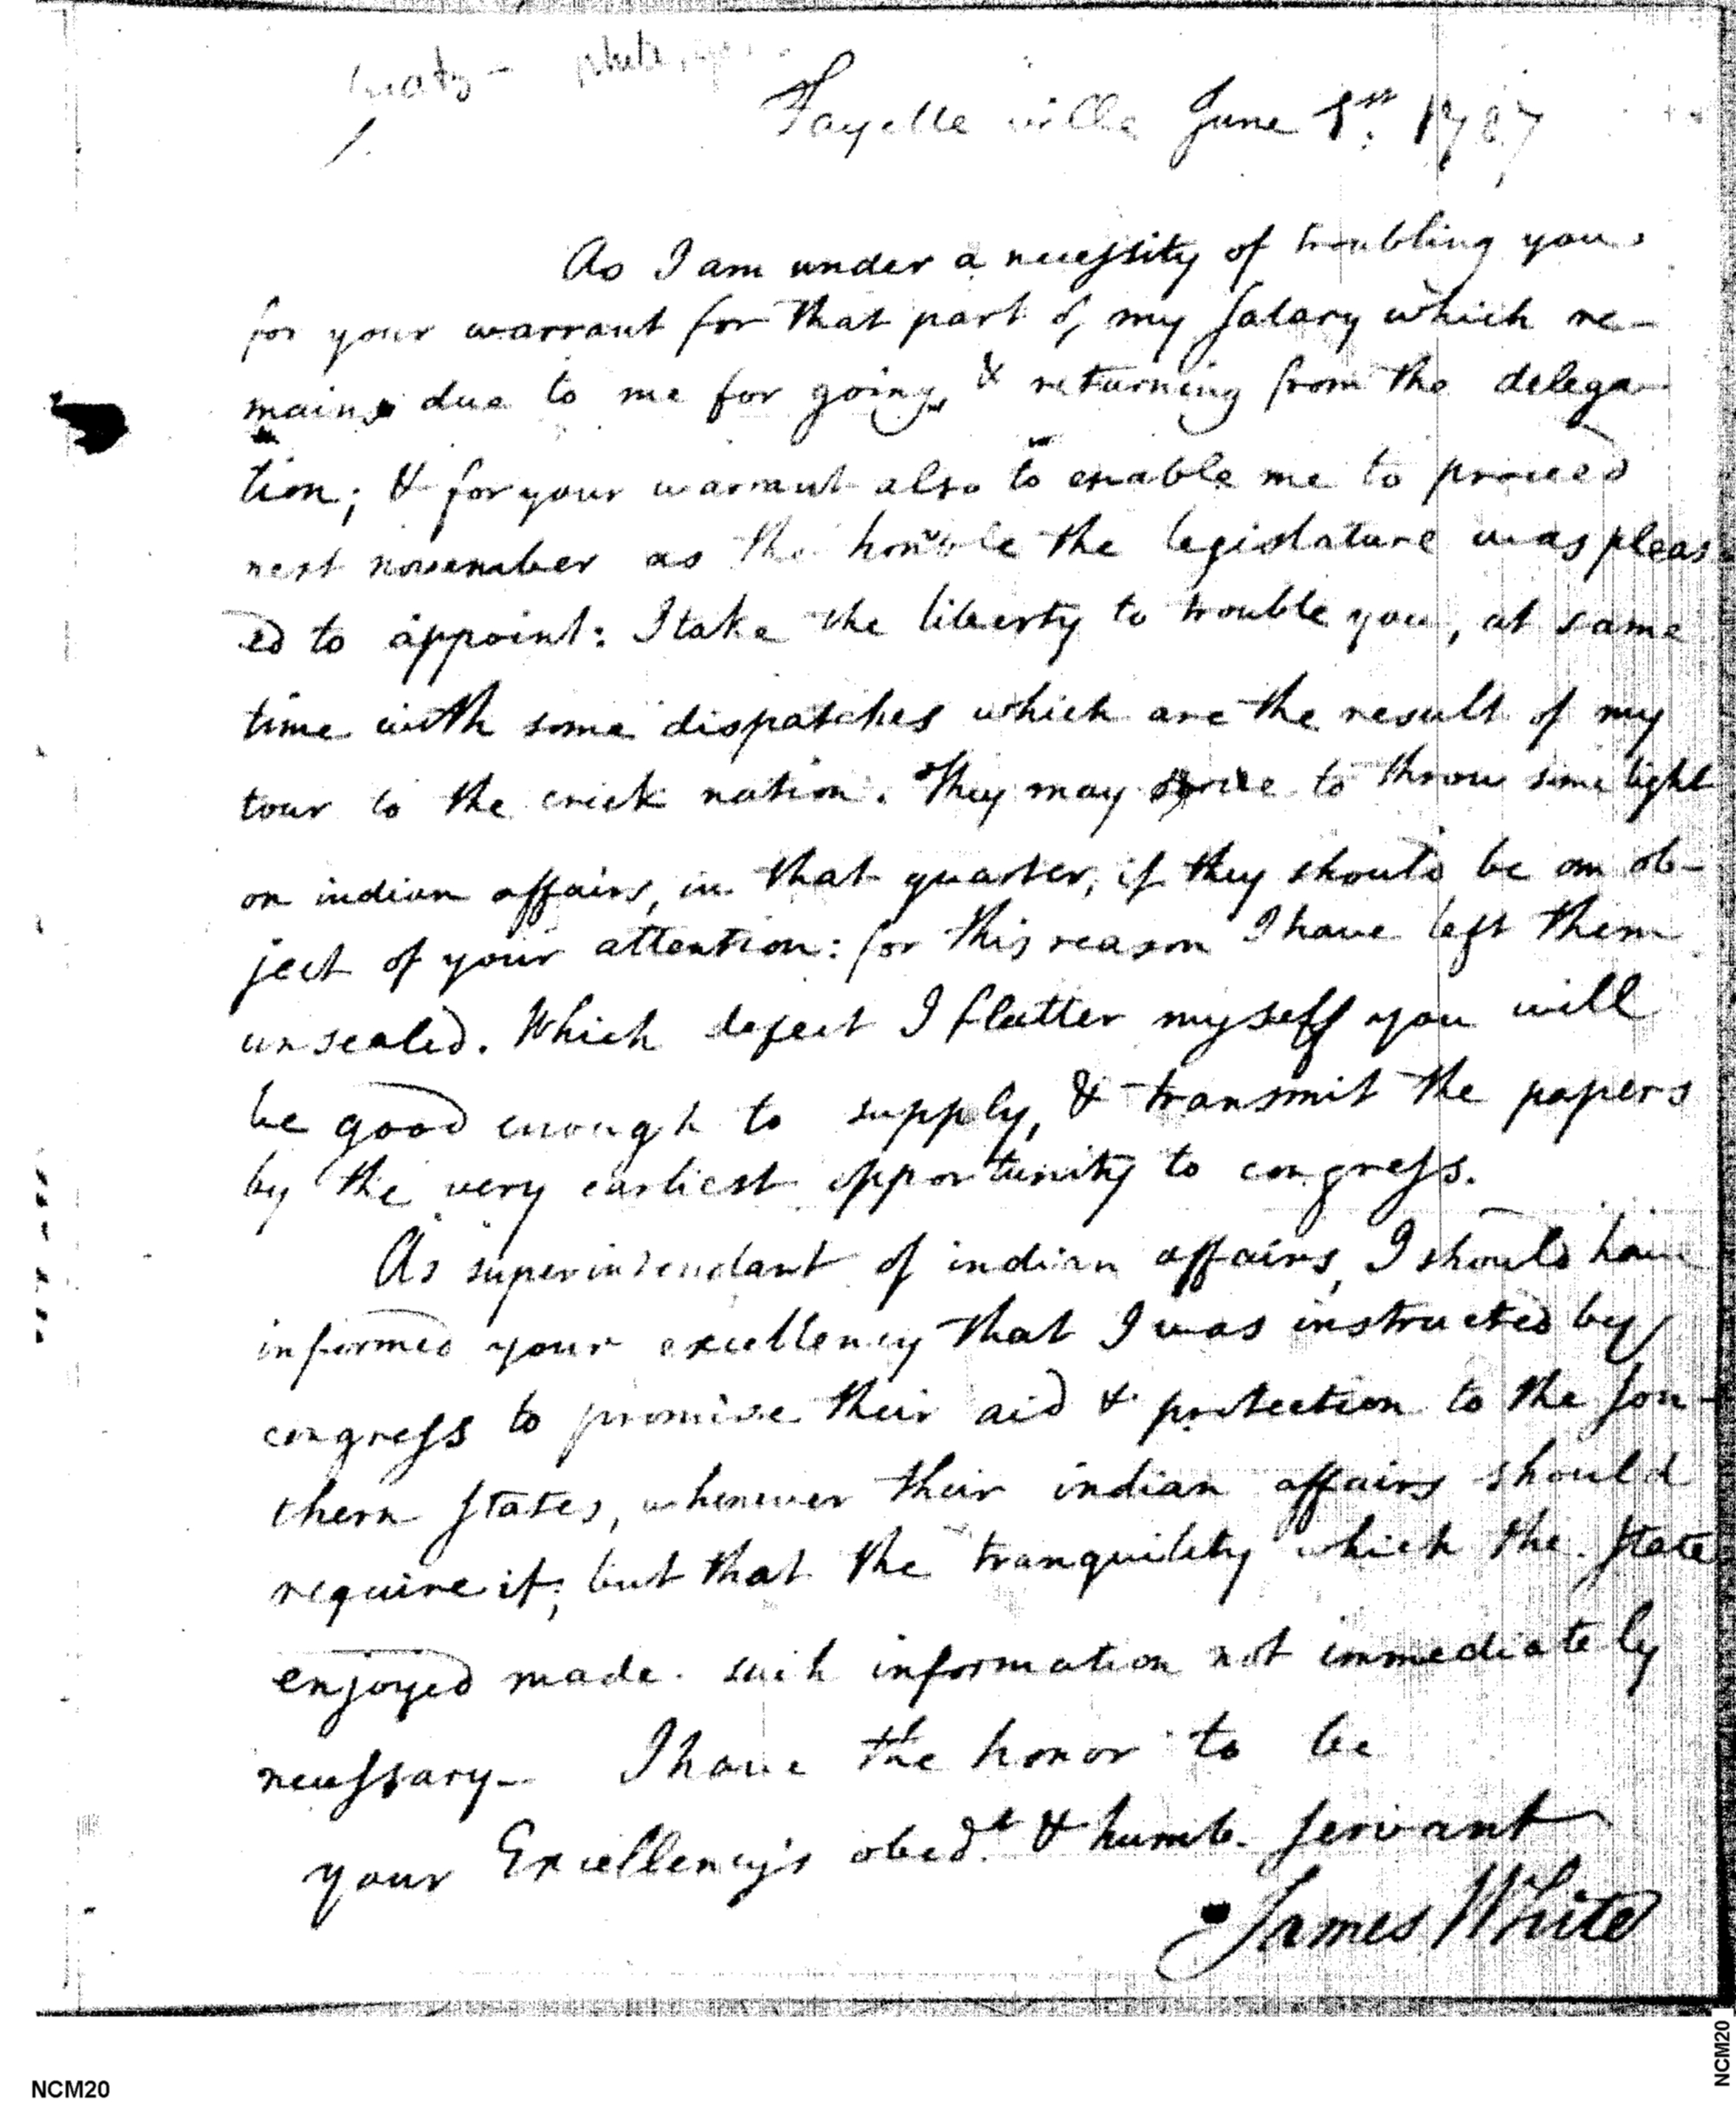 Fayette ville June 1st. 1787
As I am under a necessity of troubling you
for your warrant for that part of my salary which re-
mains due to me for going & returning from the delega-
tion; & for your warrant also to enable me to proceed
next november as the honble the legislature was pleas
ed to appoint: I take the liberty to trouble you, at same
time with some dispatches which are the result of my
tour to the creek nation. They may serve to throw some light
on indian affairs, in that quarter, if they should be an ob-
ject of your attention: for this reason I have left them
unsealed. Which defect I flatter myself you will
be good enough to supply, & transmit the papers
by the very earliest opportunity to congress.
As superintendant of indian affairs, I should have
informed your excellency that I was instructed by
congress to promise their aid & protection to the sou-
thern states, whenever their indian affairs should
require it; but that the tranquility which the state
enjoyed made such information not immediately
necessary- I have the honor to be
your Excellency's obedt. & humb. servant
James White
NCM20
NCM20